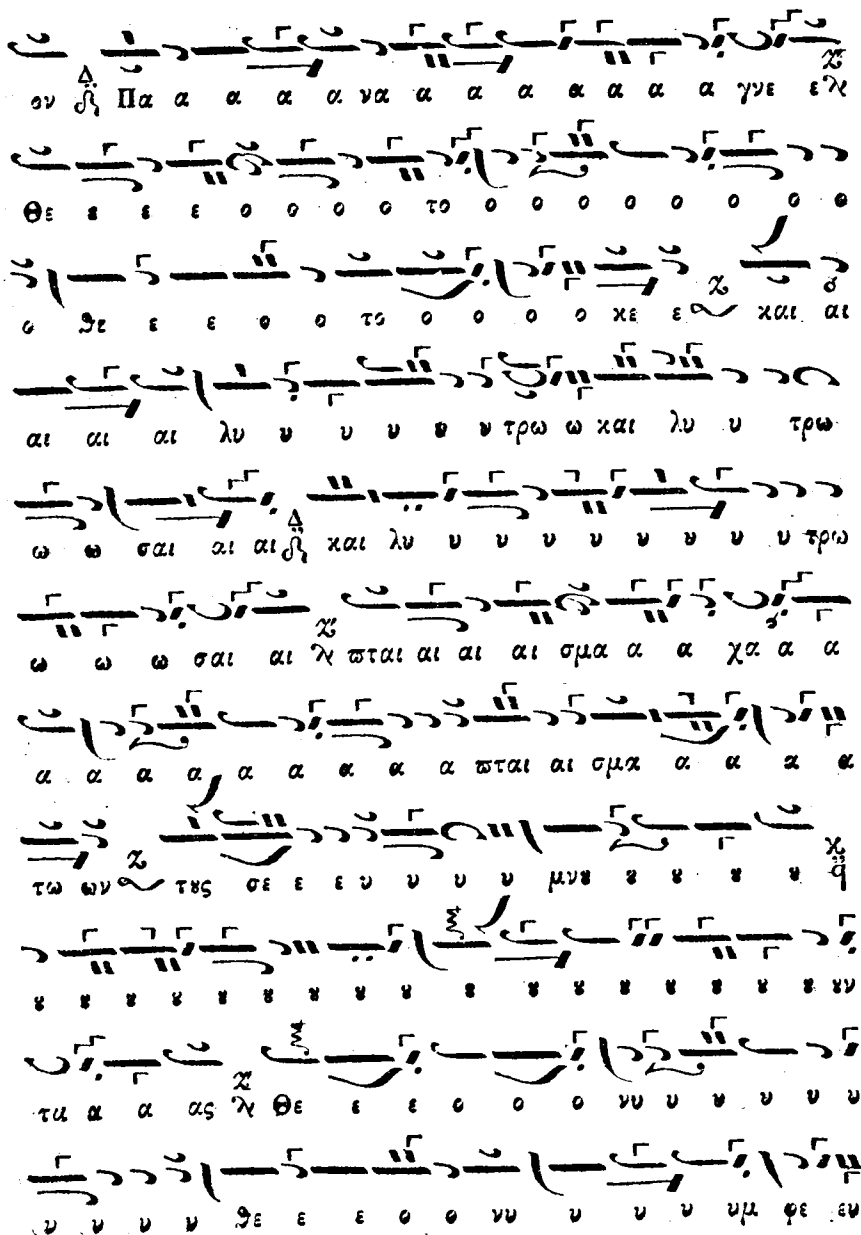 ον Πα α α α α να α α α α α α α γνε ε
Θε ε ε ε ο ο ο ο το ο ο ο ο ο ο ο ο
ο θε ε ε ο ο το ο ο ο ο κε ε και αι
αι αι αι λυ υ υ υ υ υ τρω ω και λυ υ τρω
ω ω σαι αι αι και λυ υ υ υ υ υ υ υ υ τρω
ω ω ω σαι αι πται αι αι αι σμα α α χα α α
α α α α α α α α α πται αι σμα α α α α
τω ων τȣς σε ε ε υ υ υ υ μνȣ ȣ ȣ ȣ ȣ
ȣ ȣ ȣ ȣ ȣ ȣ ȣ ȣ ȣ ȣ ȣ ȣ ȣ ȣ ȣ ȣν
τα α α ας Θε ε ε ο ο ο νυ υ υ υ υ υ υ
υ υ υ υ θε ε ε ο ο νυ υ υ υ υμ φε ευ